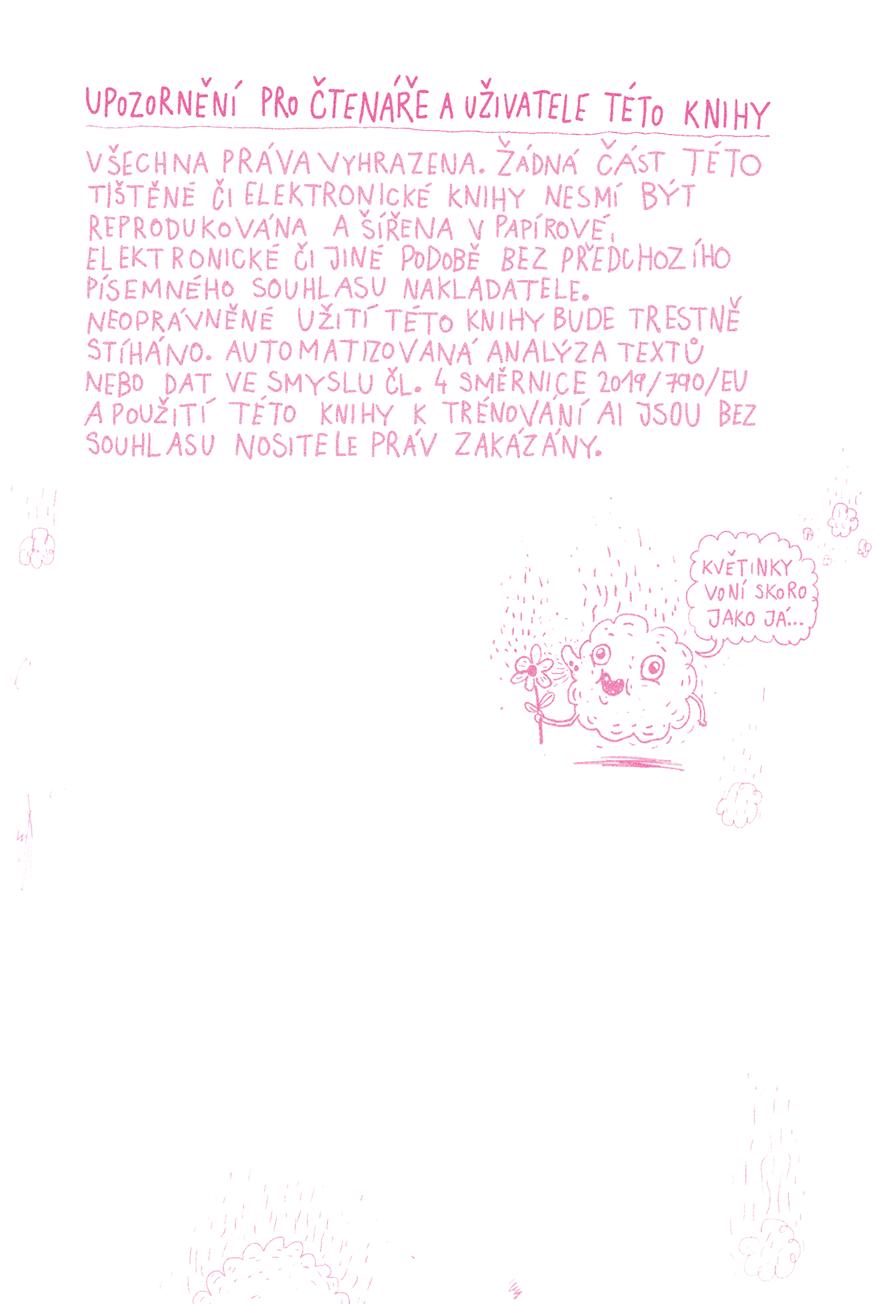 UPOZORNĚNÍ PRO ČTENÁŘE A UŽIVATELE TÉTO KNIHY
VŠECHNA PRÁVA VYHRAZENA. ŽÁDNÁ ČÁST TÉTO
TIŠTĚNÉ ČI ELEKTRONICKÉ KNIHY NESMÍ BÝT
REPRODUKOVÁNA A ŠÍŘENA V PAPÍROVÉ,
ELEKTRONICKÉ ČI JINÉ PODOBĚ BEZ PŘEDCHOZÍHO
PÍSEMNÉHO SOUHLASU NAKLADATELE.
NEOPRÁVNĚNÉ UŽITÍ TÉTO KNIHY BUDE TRESTNĚ
STÍHÁNO. AUTOMATIZOVANÁ ANALÝZA TEXTŮ
NEBO DAT VE SMYSLU ČL. 4 SMĚRNICE 2019/790/EU
A POUŽITÍ TÉTO KNIHY K TRÉNOVÁNÍ AI JSOU BEZ
SOUHLASU NOSITELE PRÁV ZAKÁZÁNY.
KVĚTINKY
VONÍ SKORO
JAKO JÁ...